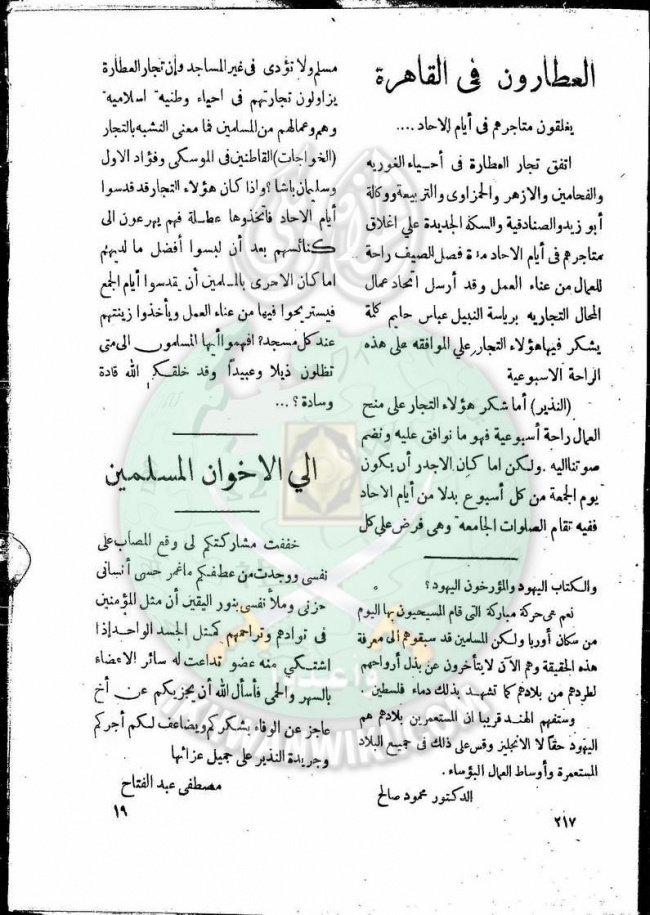 العطارون فى القاهرة
يغلقون متاجرهم فى أيام الاحاد ....
اتفق تجار العطارة فى أحياء الغوريه
والفحامين والازهر والحمزاوى والتربيعة ووكالة
أبو زيد والصنادقية والسكة الجديدة علي اغلاق
متاجرهم فى أيام الاحاد مدة فصل الصيف راحة
للعمال من عناء العمل وقد أرسل اتحاد عمال
المحال التجاريه برياسة النبيل عباس حليم كلمة
يشكر فيها هؤلاء التجار علي الموافقه على هذه
الراحة الاسبوعية
(النذير) أما شكر هؤلاء التجار على منح
العمال راحة أسبوعية فهو ما نوافق عليه ونضم
صوتنا اليه . ولكن اما كان الاجدر أن يكون
يوم الجمعة من كل أسبوع بدلا من أيام الاحاد
ففيه تقام الصلوات الجامعه وهى فرض على كل
مسلم ولا تؤدى فى غير المساجد وإن تجار العطارة
يزاولون تجارتهم فى احياء وطنية اسلامية
وهم وعمالهم من المسلمين فما معنى التشبه بالتجار
(الخواجات) القاطنين فى الموسكي وفؤاد الاول
وسليمان باشا ؟ واذا كان هؤلاء التجار قد قدسوا
أيام الاحاد فاتخذوها عطلة فهم يهرعون الى
كنائسهم بعد أن لبسوا أفضل ما لديهم
اما كان الاحرى بالمسلمين أن يقدسوا أيام الجمع
فيستريحوا فيها من عناء العمل ويأخذوا زينتهم
عند كل مسجد ؟ افهموا أيها المسلمون الى متى
تظلون ذيلا وعبيداً وقد خلقكم الله قادة
وسادة ؟ ...
والكتاب اليهود والمؤرخون اليهود ؟
نعم هى حركة مباركة التى قام المسيحيون بها اليوم
من سكان أوربا ولكن المسلمين قد سبقوهم الى معرفة
هذه الحقيقة وهم الآن لا يتأخرون عن بذل أرواحهم
لطردهم من بلادهم كما تشهد بذلك دماء فلسطين .
وستفهم الهند قريبا ان المستعمرين بلادهم هم
اليهود حقاً لا الانجليز وقس على ذلك فى جميع البلاد
المستعمرة وأوساط العمال البؤساء .
الدكتور محمود صالح
الي الاخوان المسلمين
خففت مشاركتكم لى وقع المصاب على
نفسى ووجدت من عطفكم ما غمر حسى أنسانى
حزنى وملأ نفسى بنور اليقين أن مثل المؤمنين
فى توادهم وتراحمهم كمثل الجسد الواحد إذا
اشتكى منه عضو تداعت له سائر الاعضاء
بالسهر والحمى فأسأل الله أن يجزيكم عن أخ
عاجز عن الوفاء بشكركم ويضاعف لكم أجركم
وجريدة النذير على جميل عزائها
مصطفى عبد الفتاح
١٩
٢١٧
واعدوا
IKHWANWIKI.COM